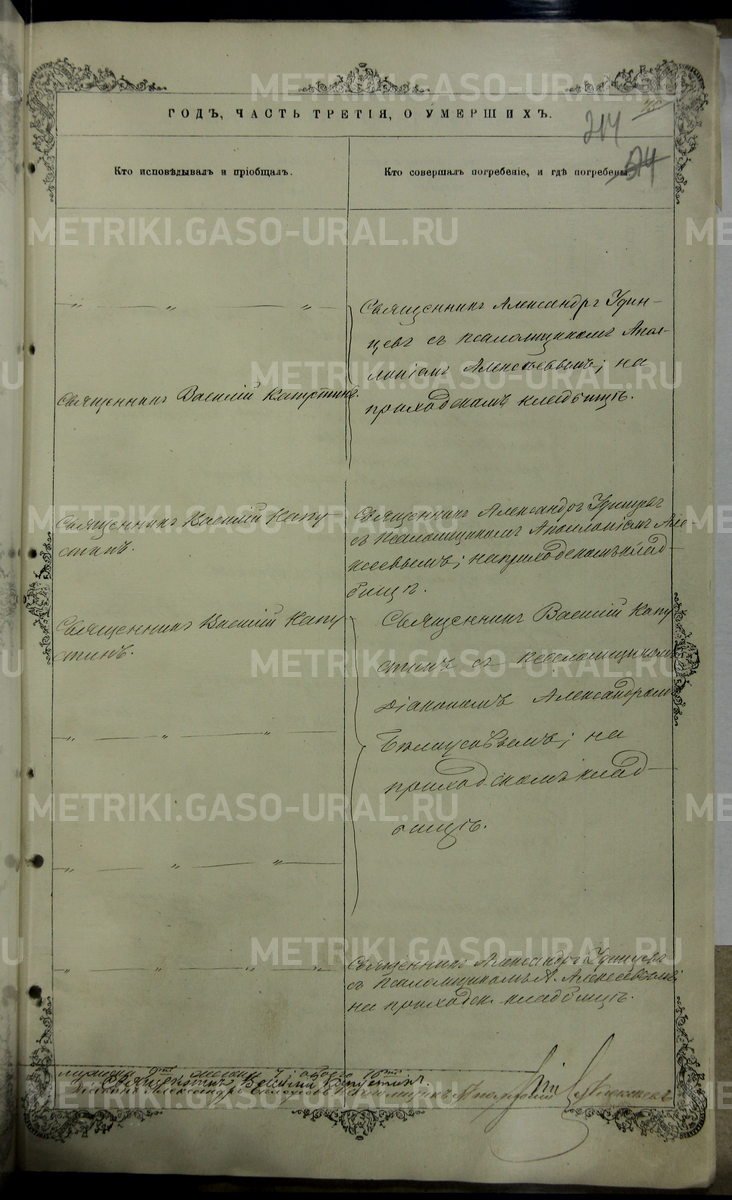 METRIKI.GASO-URAL.RU
ГОДЪ, ЧАСТЬ ТРЕТІЯ, О УМЕРШИХЪ.
214
Кто исповѣдывалъ и пріобщалъ.
Кто совершалъ погребеніе, и гдѣ погребены.
Священникъ Александръ Удин-
цевъ съ псаломщикомъ Апол-
лоніемъ Алексѣевымъ; на
приходскомъ кладбищѣ.
Священникъ Василій Капустинъ.
Священникъ Василій Капу
стинъ.
Священникъ Александръ Удинцевъ
съ псаломщикомъ Аполлоніемъ Але
ксѣевымъ; на приходскомъ клад-
бищѣ.
Священникъ Василій Капу
стинъ.
Священникъ Василій Капу
стинъ съ псаломщикомъ
діакономъ Александромъ
на
приходскомъ клад-
бищѣ.
Священникъ Александръ Удинцевъ
съ псаломщикомъ А. Алексѣевымъ;
на приходск. кладбищѣ.
Священникъ Василій Капустинъ.